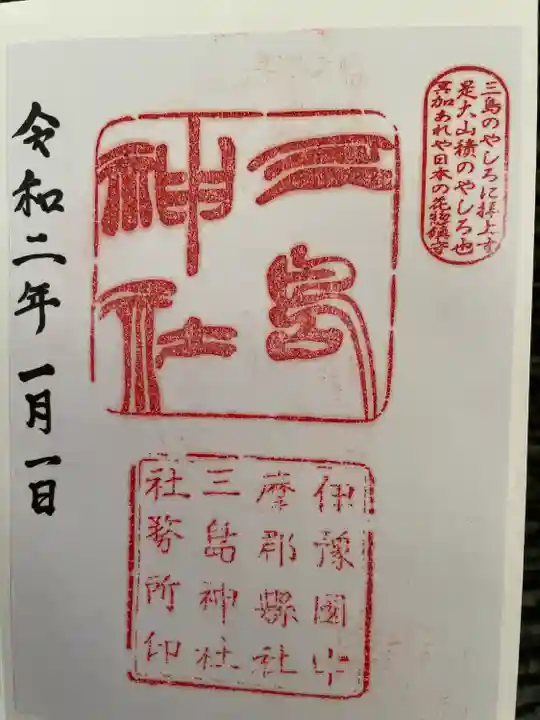 三島のやしろに捧上す
是大山積のやしろ也
冥加あれや日本の花惣鎮守
三島
神社
伊豫國宇
摩郡縣社
三島神社
社務所印
令和二年一月一日